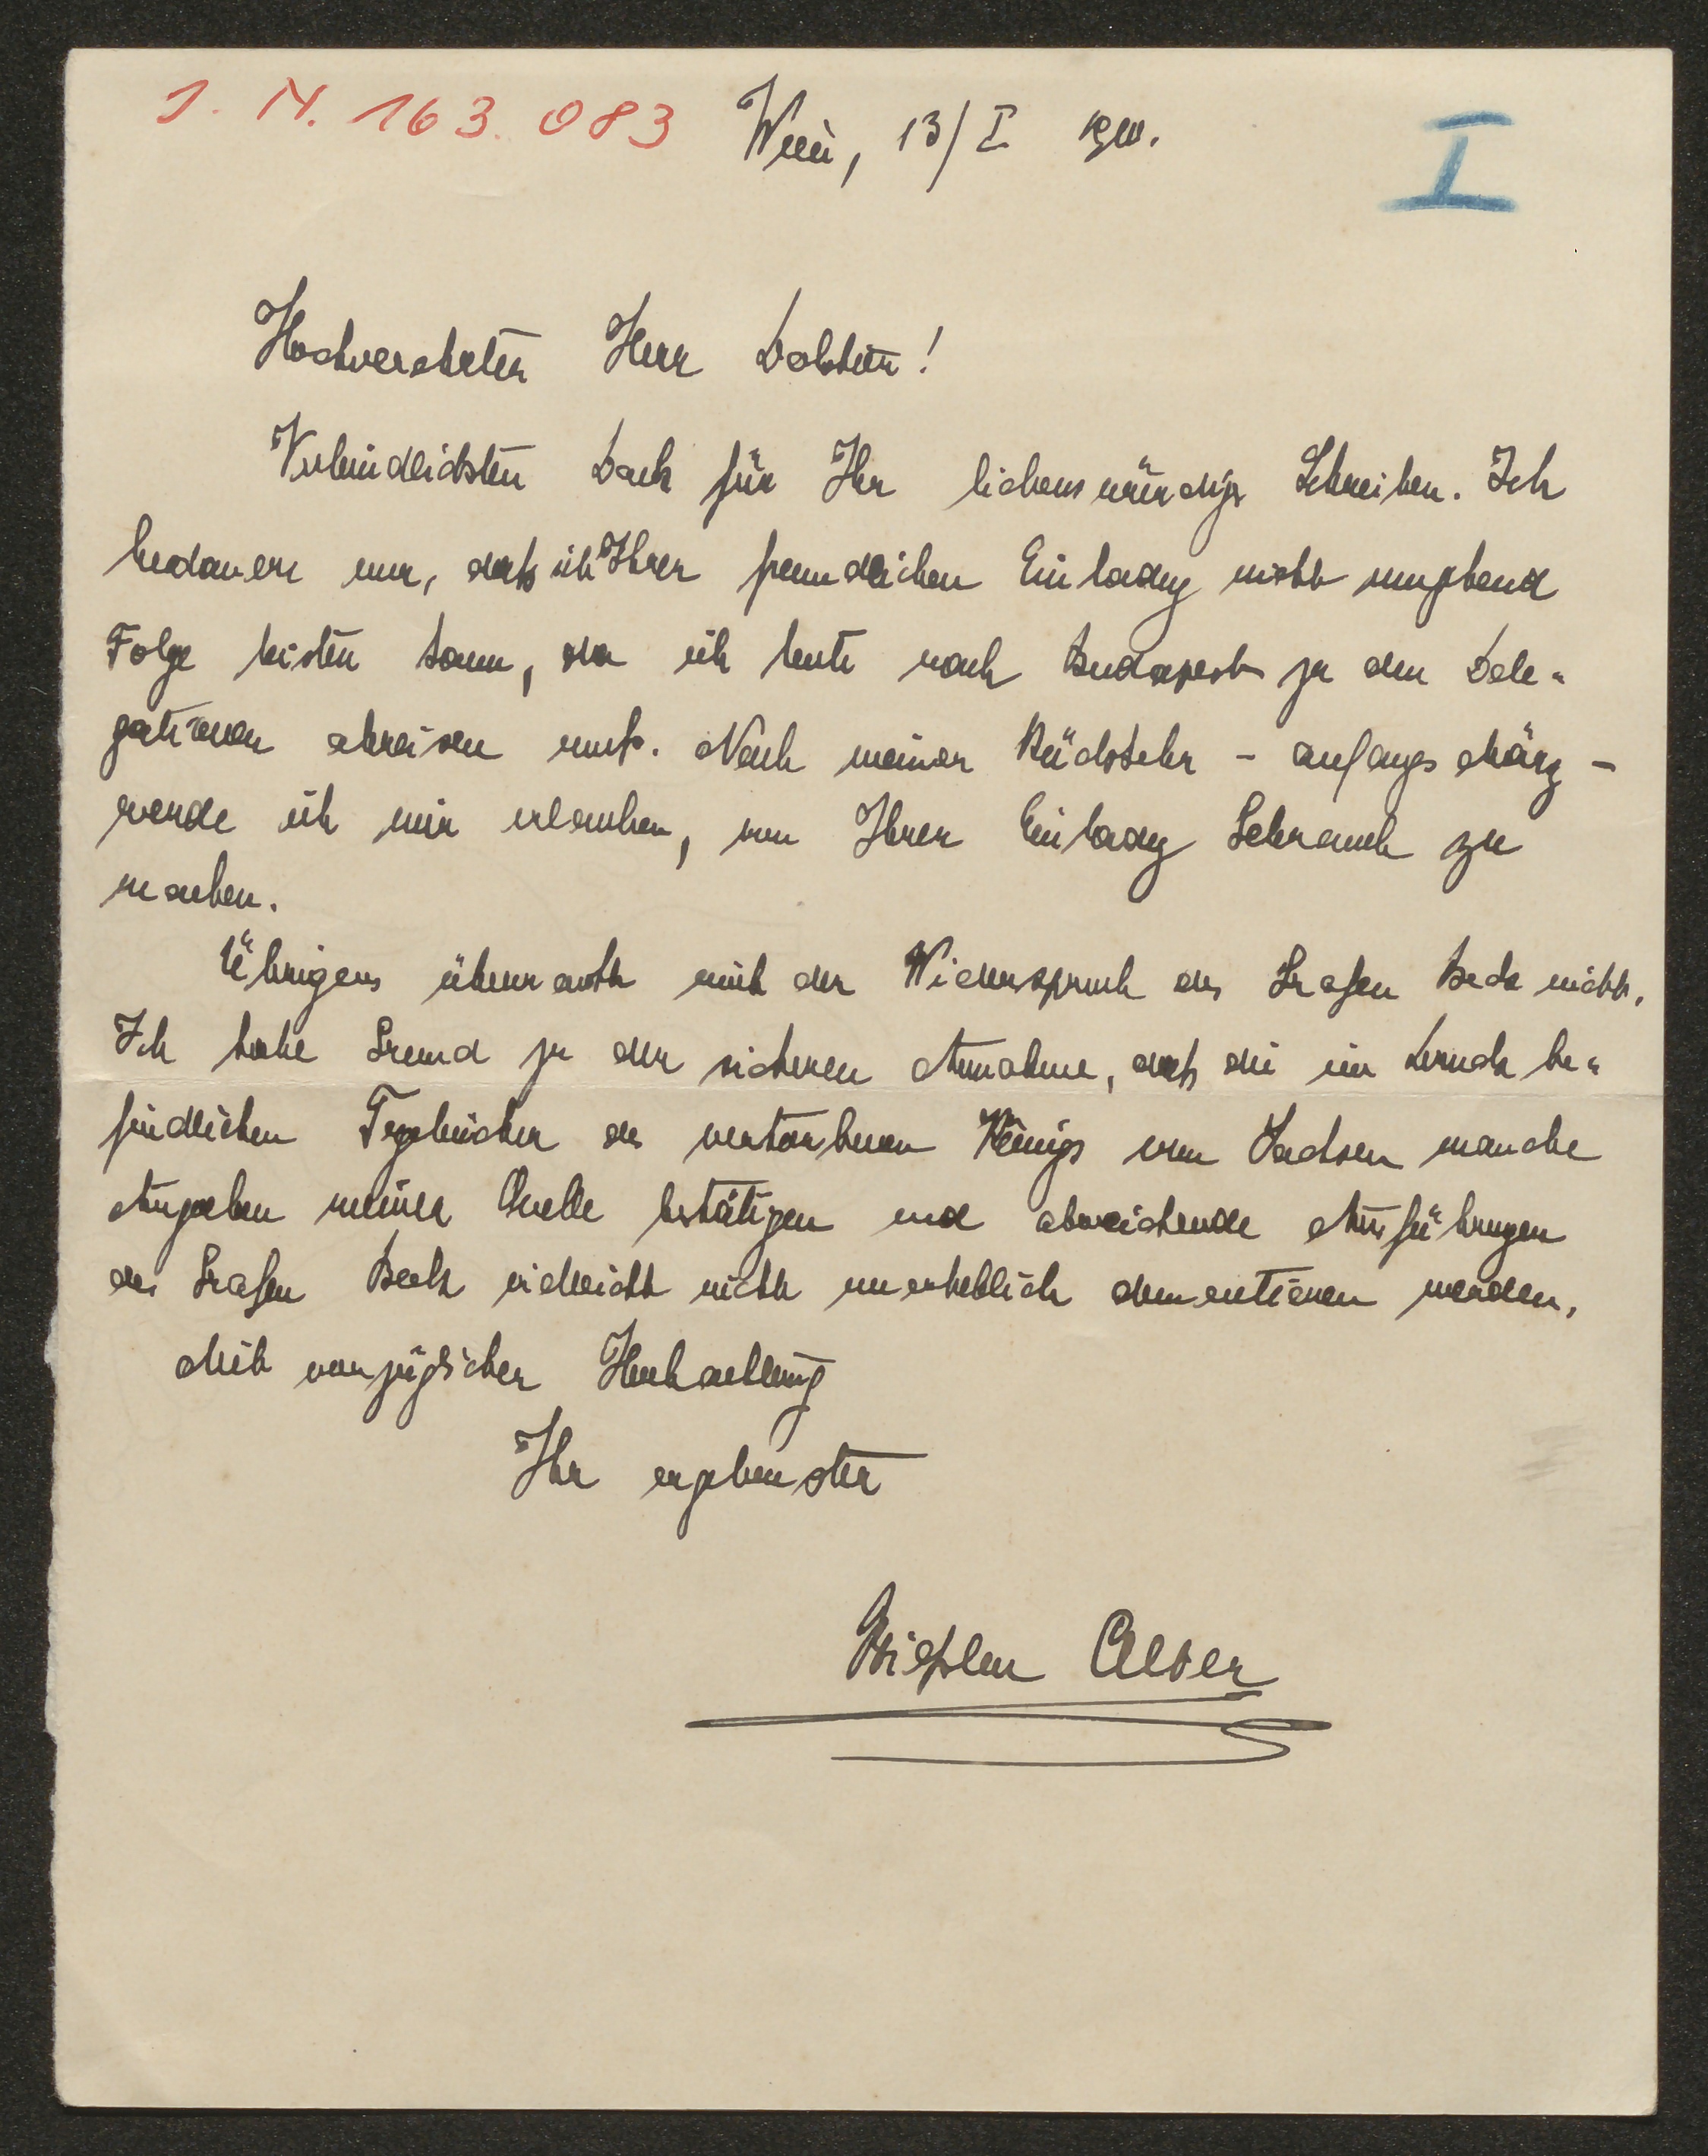 J. N. 163.083
Wien, 13/I 1910.
I
Hochverehrter Herr Doktor!
Verbindlichsten Dank für Ihr liebenswürdiges Schreiben. Ich
bedauere nur, daß ich Ihrer freundlichen Einladung nicht umgehend
Folge leisten kann, da ich heute nach Budapest zu den Dele-
gationen abreisen muß. Nach meiner Rückkehr - anfangs März -
werde ich mir erlauben, von Ihrer Einladung Gebrauch zu
machen.
Übrigens überrascht mich der Widerspruch des Grafen Beck nicht.
Ich habe Grund zu der sicheren Annahme, daß die im Druck be-
findlichen Tagebücher des verstorbenen Königs von Sachsen manche
Angaben meiner Quelle bestätigen und abweichende Ausführungen
des Grafen Beck vielleicht nicht unerheblich dementieren werden.
Mit vorzüglicher Hochachtung
Ihr ergebenster